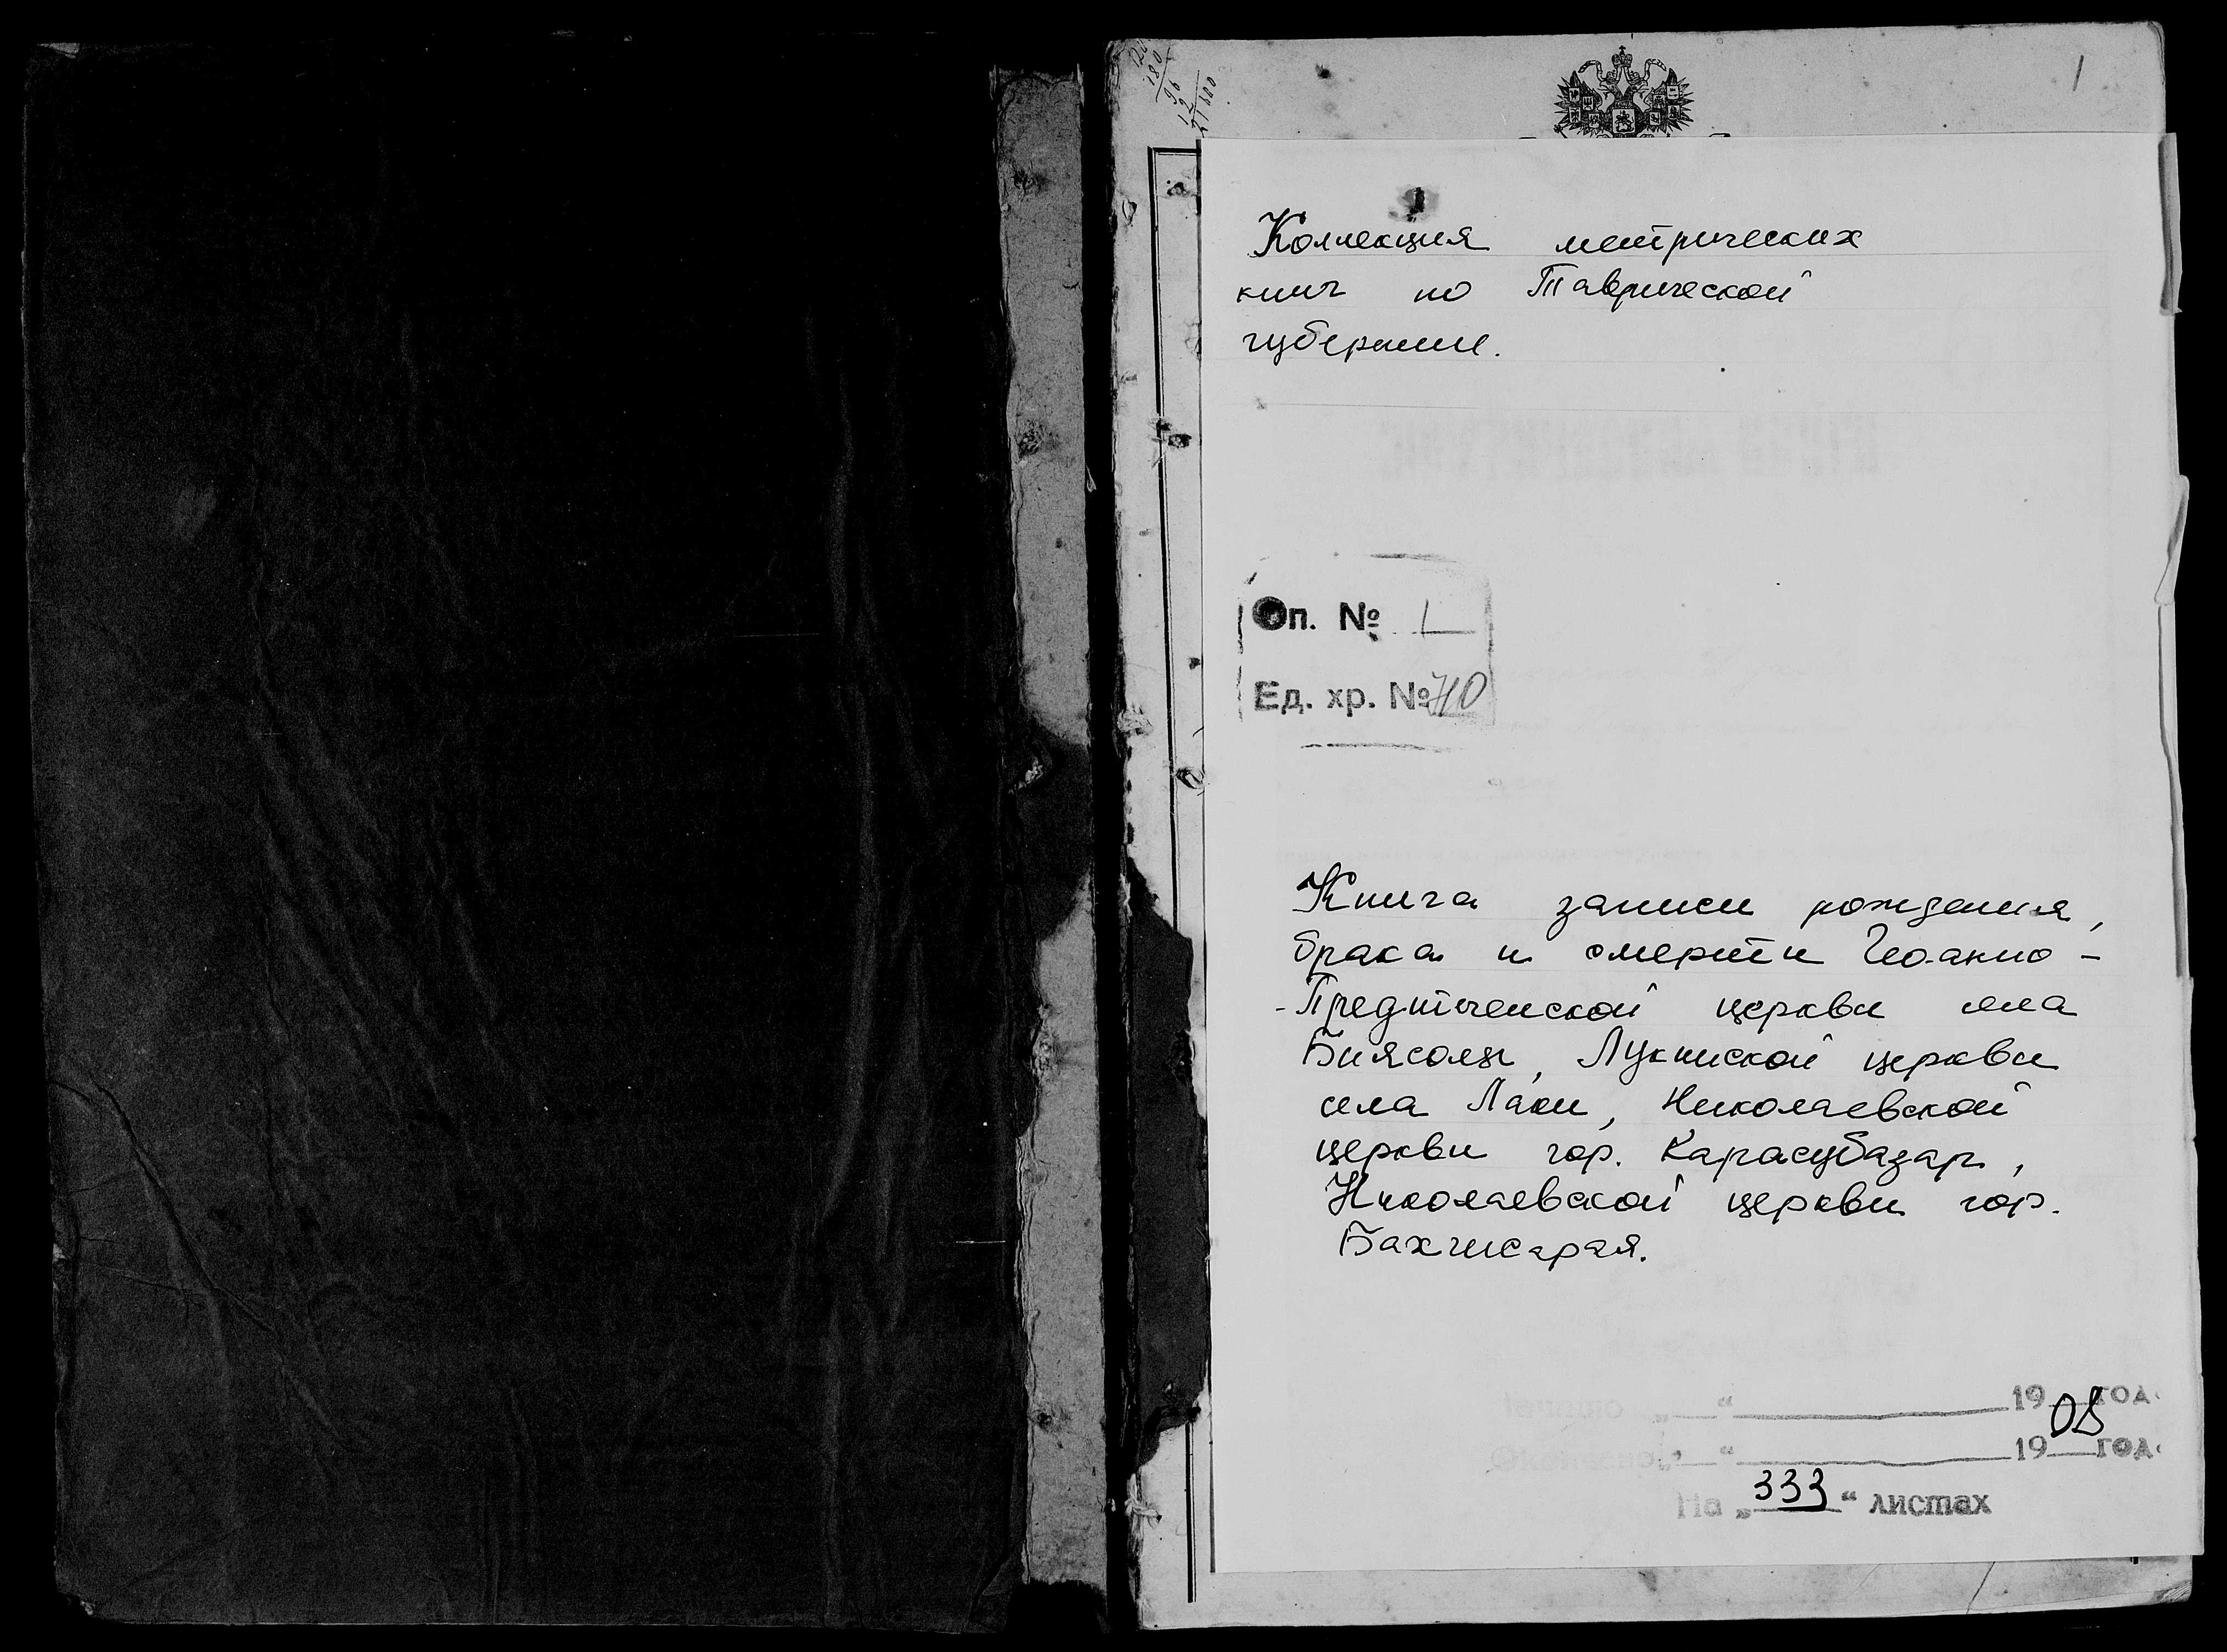 1
Коллекция метрических
книг по Таврической
губернии.
Оп. № 1
Ед. хр. № 710
Книга записи рождения,
брака и смерти Иоанно-
-Предтеченской церкви села
Биясолы, Лукинской церкви
села Лаки, Николаевской
церкви гор. Карасубазар,
Николаевской церкви гор.
Бахчисарая.
Начато „ “ 19 год
Окончено „ “ 1908 год
На „333“ листах